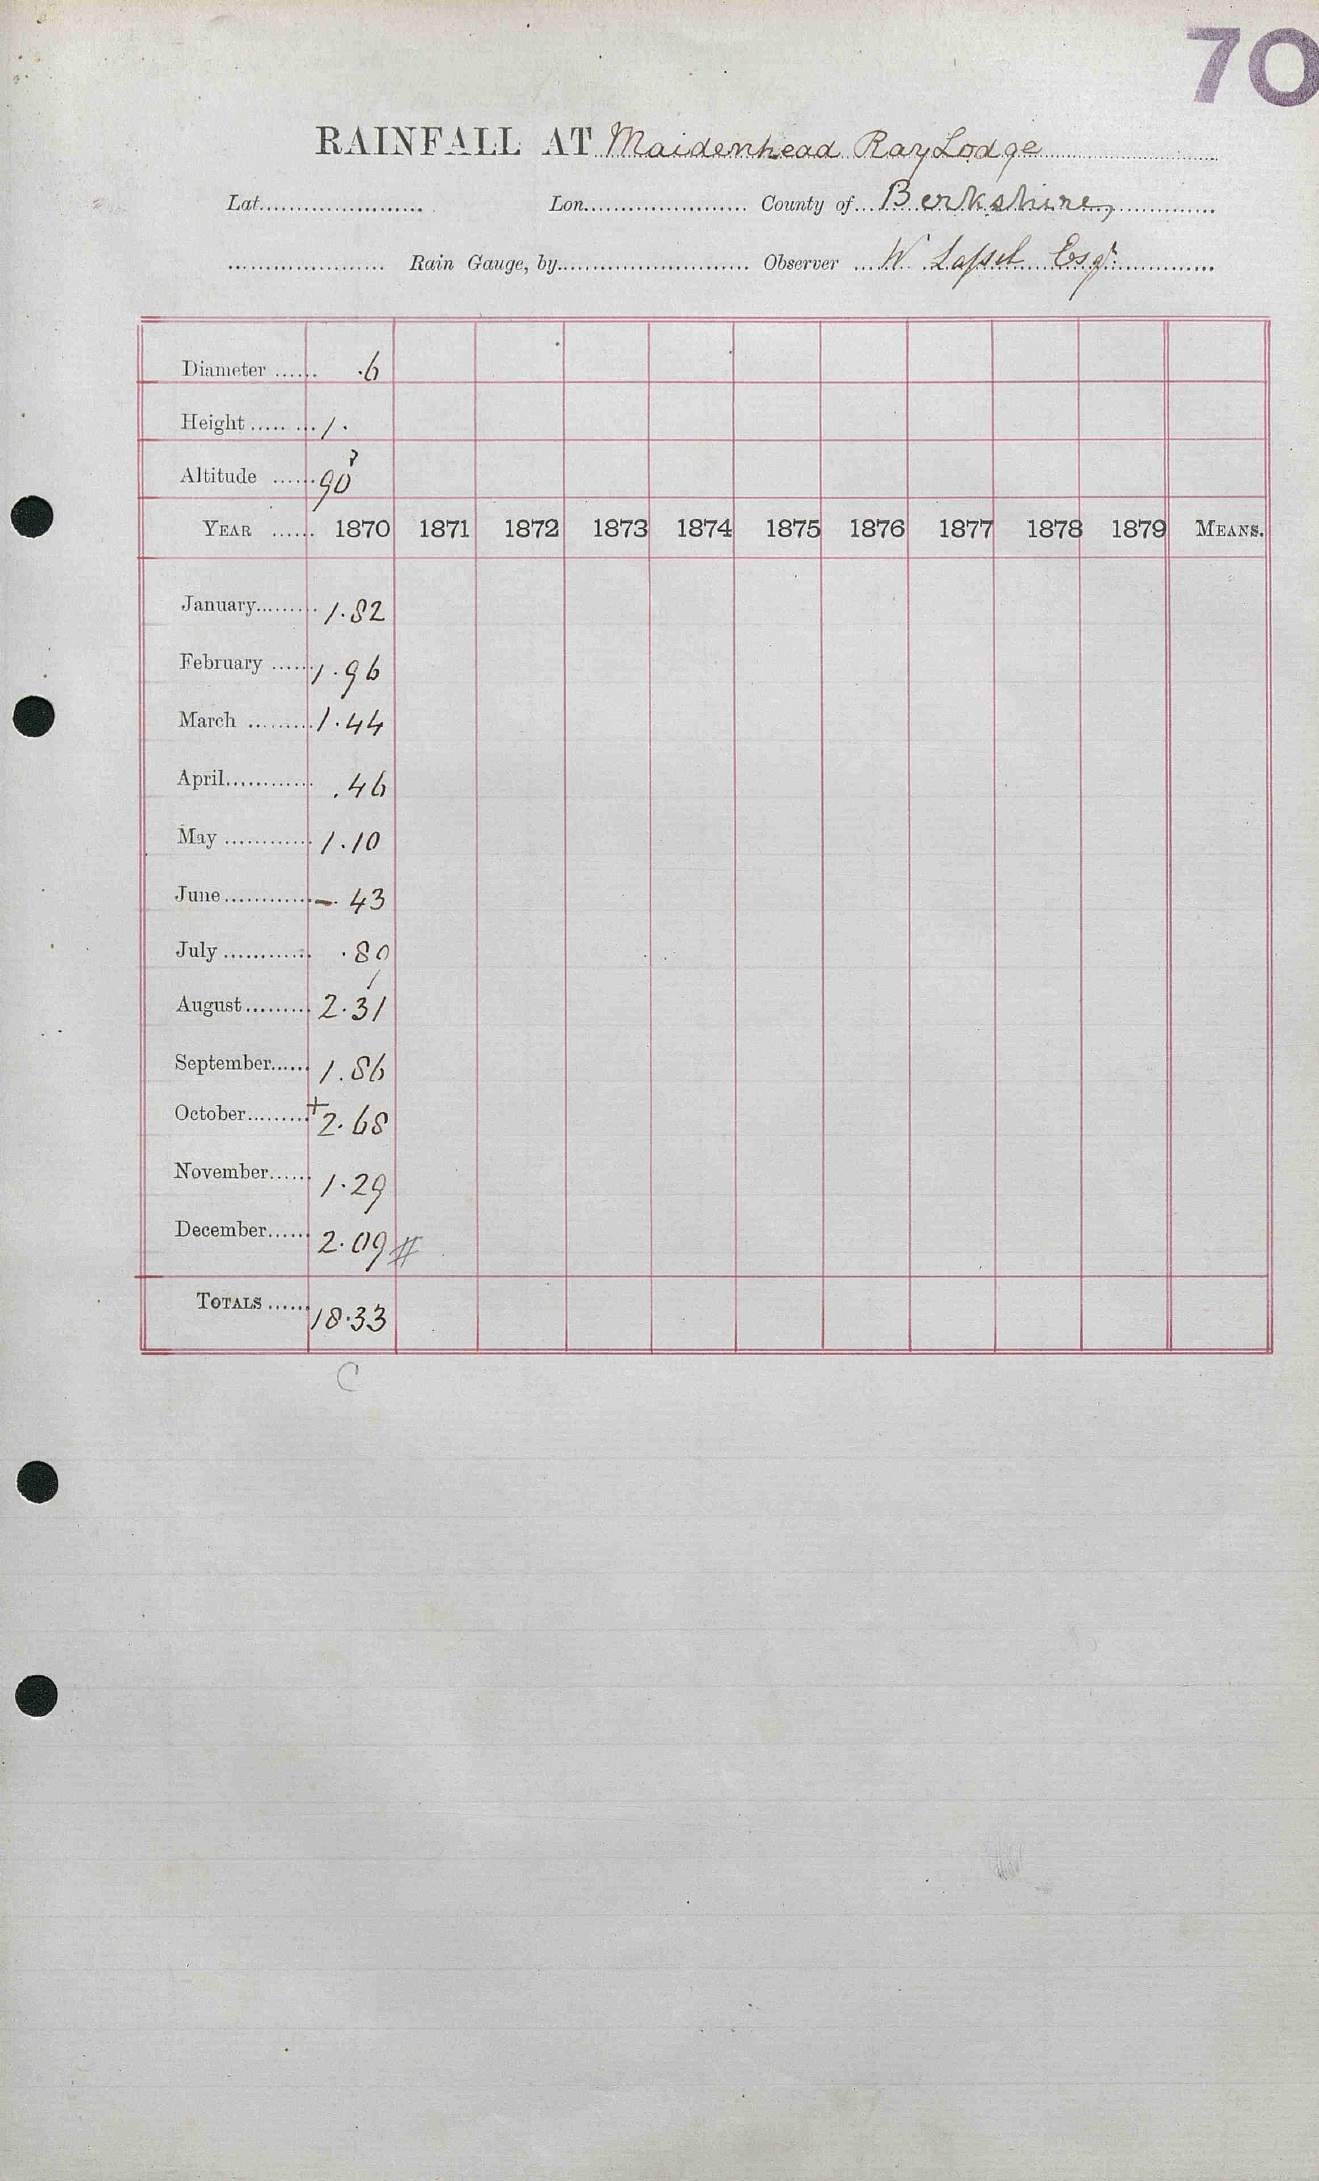 70
RAINFALL AT Maidenhead Ray Lodge
Lat. Lon. County of Berkshire,
Rain Gauge, by Observer W Lassel Esqr
Diameter .6
Height 1.
Altitude 90 ?
YEAR 1870 1871 1872 1873 1874 1875 1876 1877 1878 1879 MEANS.
January 1.82
February 1.96
March 1.44
April .46
May 1.10
June – 43
July .80
August 2.31
September 1.86
October +2.68
November 1.29
December 2.09 #
TOTALS 18.33
C